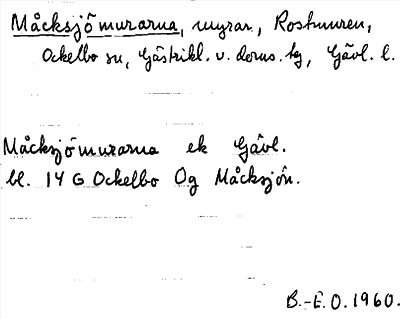 Måcksjömurarna, myrar, Rostmuren,
Ockelbo sn, Gästrikl. v. doms. tg, Gävl. l.
Måcksjömurarna ek Gävl.
bl. 14 G Ockelbo Og Måcksjön.
B.-E.O. 1960.